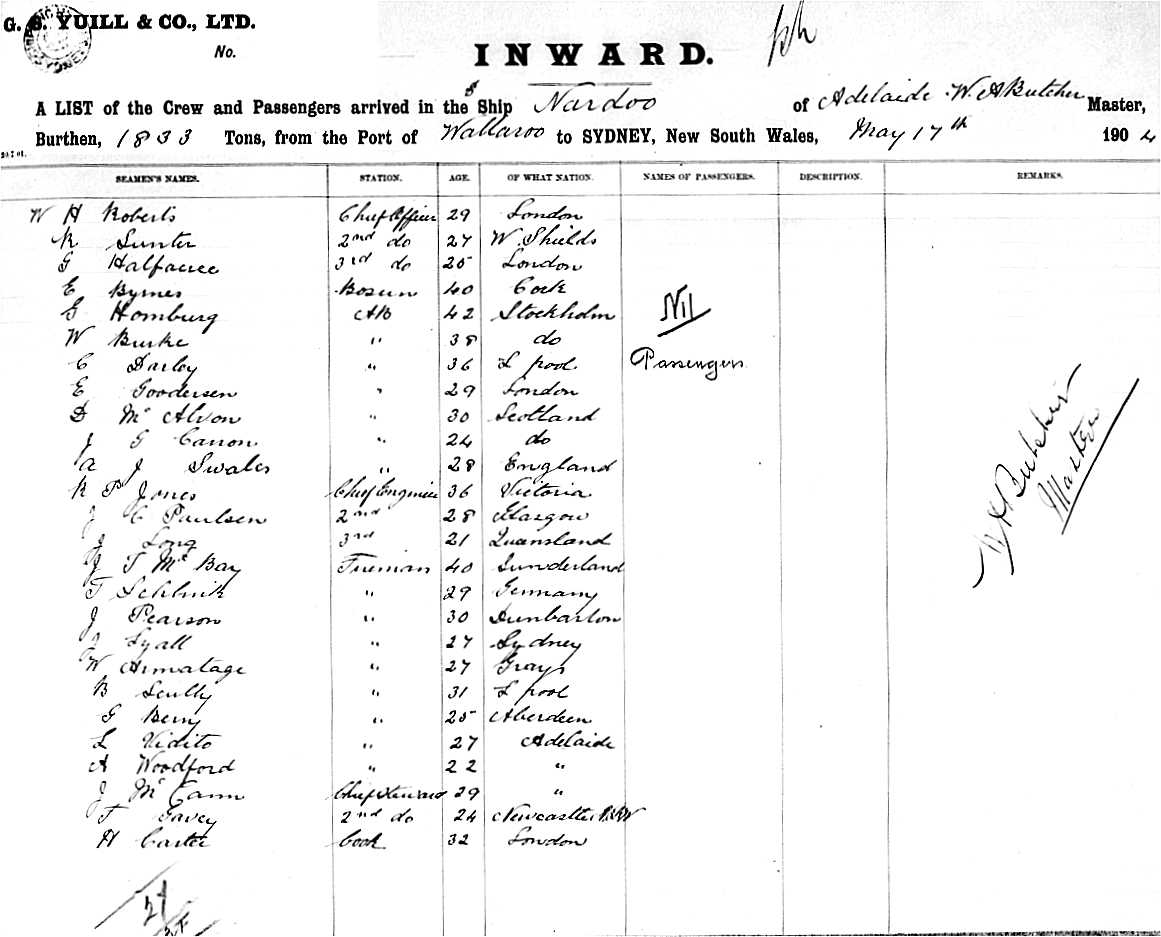 G. S. YUILL & CO., LTD.
No.
INWARD.
A LIST of the Crew and Passengers arrived in the S Ship Nardoo of Adelaide W. A Butcher Master,
Burthen, 1833 Tons, from the Port of Wallaroo to SYDNEY, New South Wales, May 17th 1904
SEAMEN'S NAMES. STATION. AGE. OF WHAT NATION. NAMES OF PASSENGERS. DESCRIPTION. REMARKS.
W H Roberts Chief Officer 29 London
R Sunter 2nd do 27 W. Shields
G Halfacree 3rd do 25 London
E Byrnes Bosun 40 Cork
G Homburg AB 42 Stockholm
Nil
W Burke " 38 do
C Darley " 36 L pool
Passengers
E Goodersen " 29 London
D Mc Alvon " 30 Scotland
J G Carron " 24 do
A J Swales " 28 England
R P Jones Chief Engineer 36 Victoria
J C Paulsen 2nd 28 Glasgow
J Long 3rd 21 Queensland
W A Butcher
Master
J T Mc Bay Fireman 40 Sunderland
T " 29 Germany
J Pearson " 30 Dunbarton
J Lyall " 27 Sydney
W Armatage " 27 Grays
B Scully " 31 L pool
G Berry " 25 Aberdeen
L Vidito " 27 Adelaide
A Woodford " 22 "
J Mc Cann Chief Steward 29 "
T 2nd do 24 Newcastle NSW
H Carter Cook 32 London